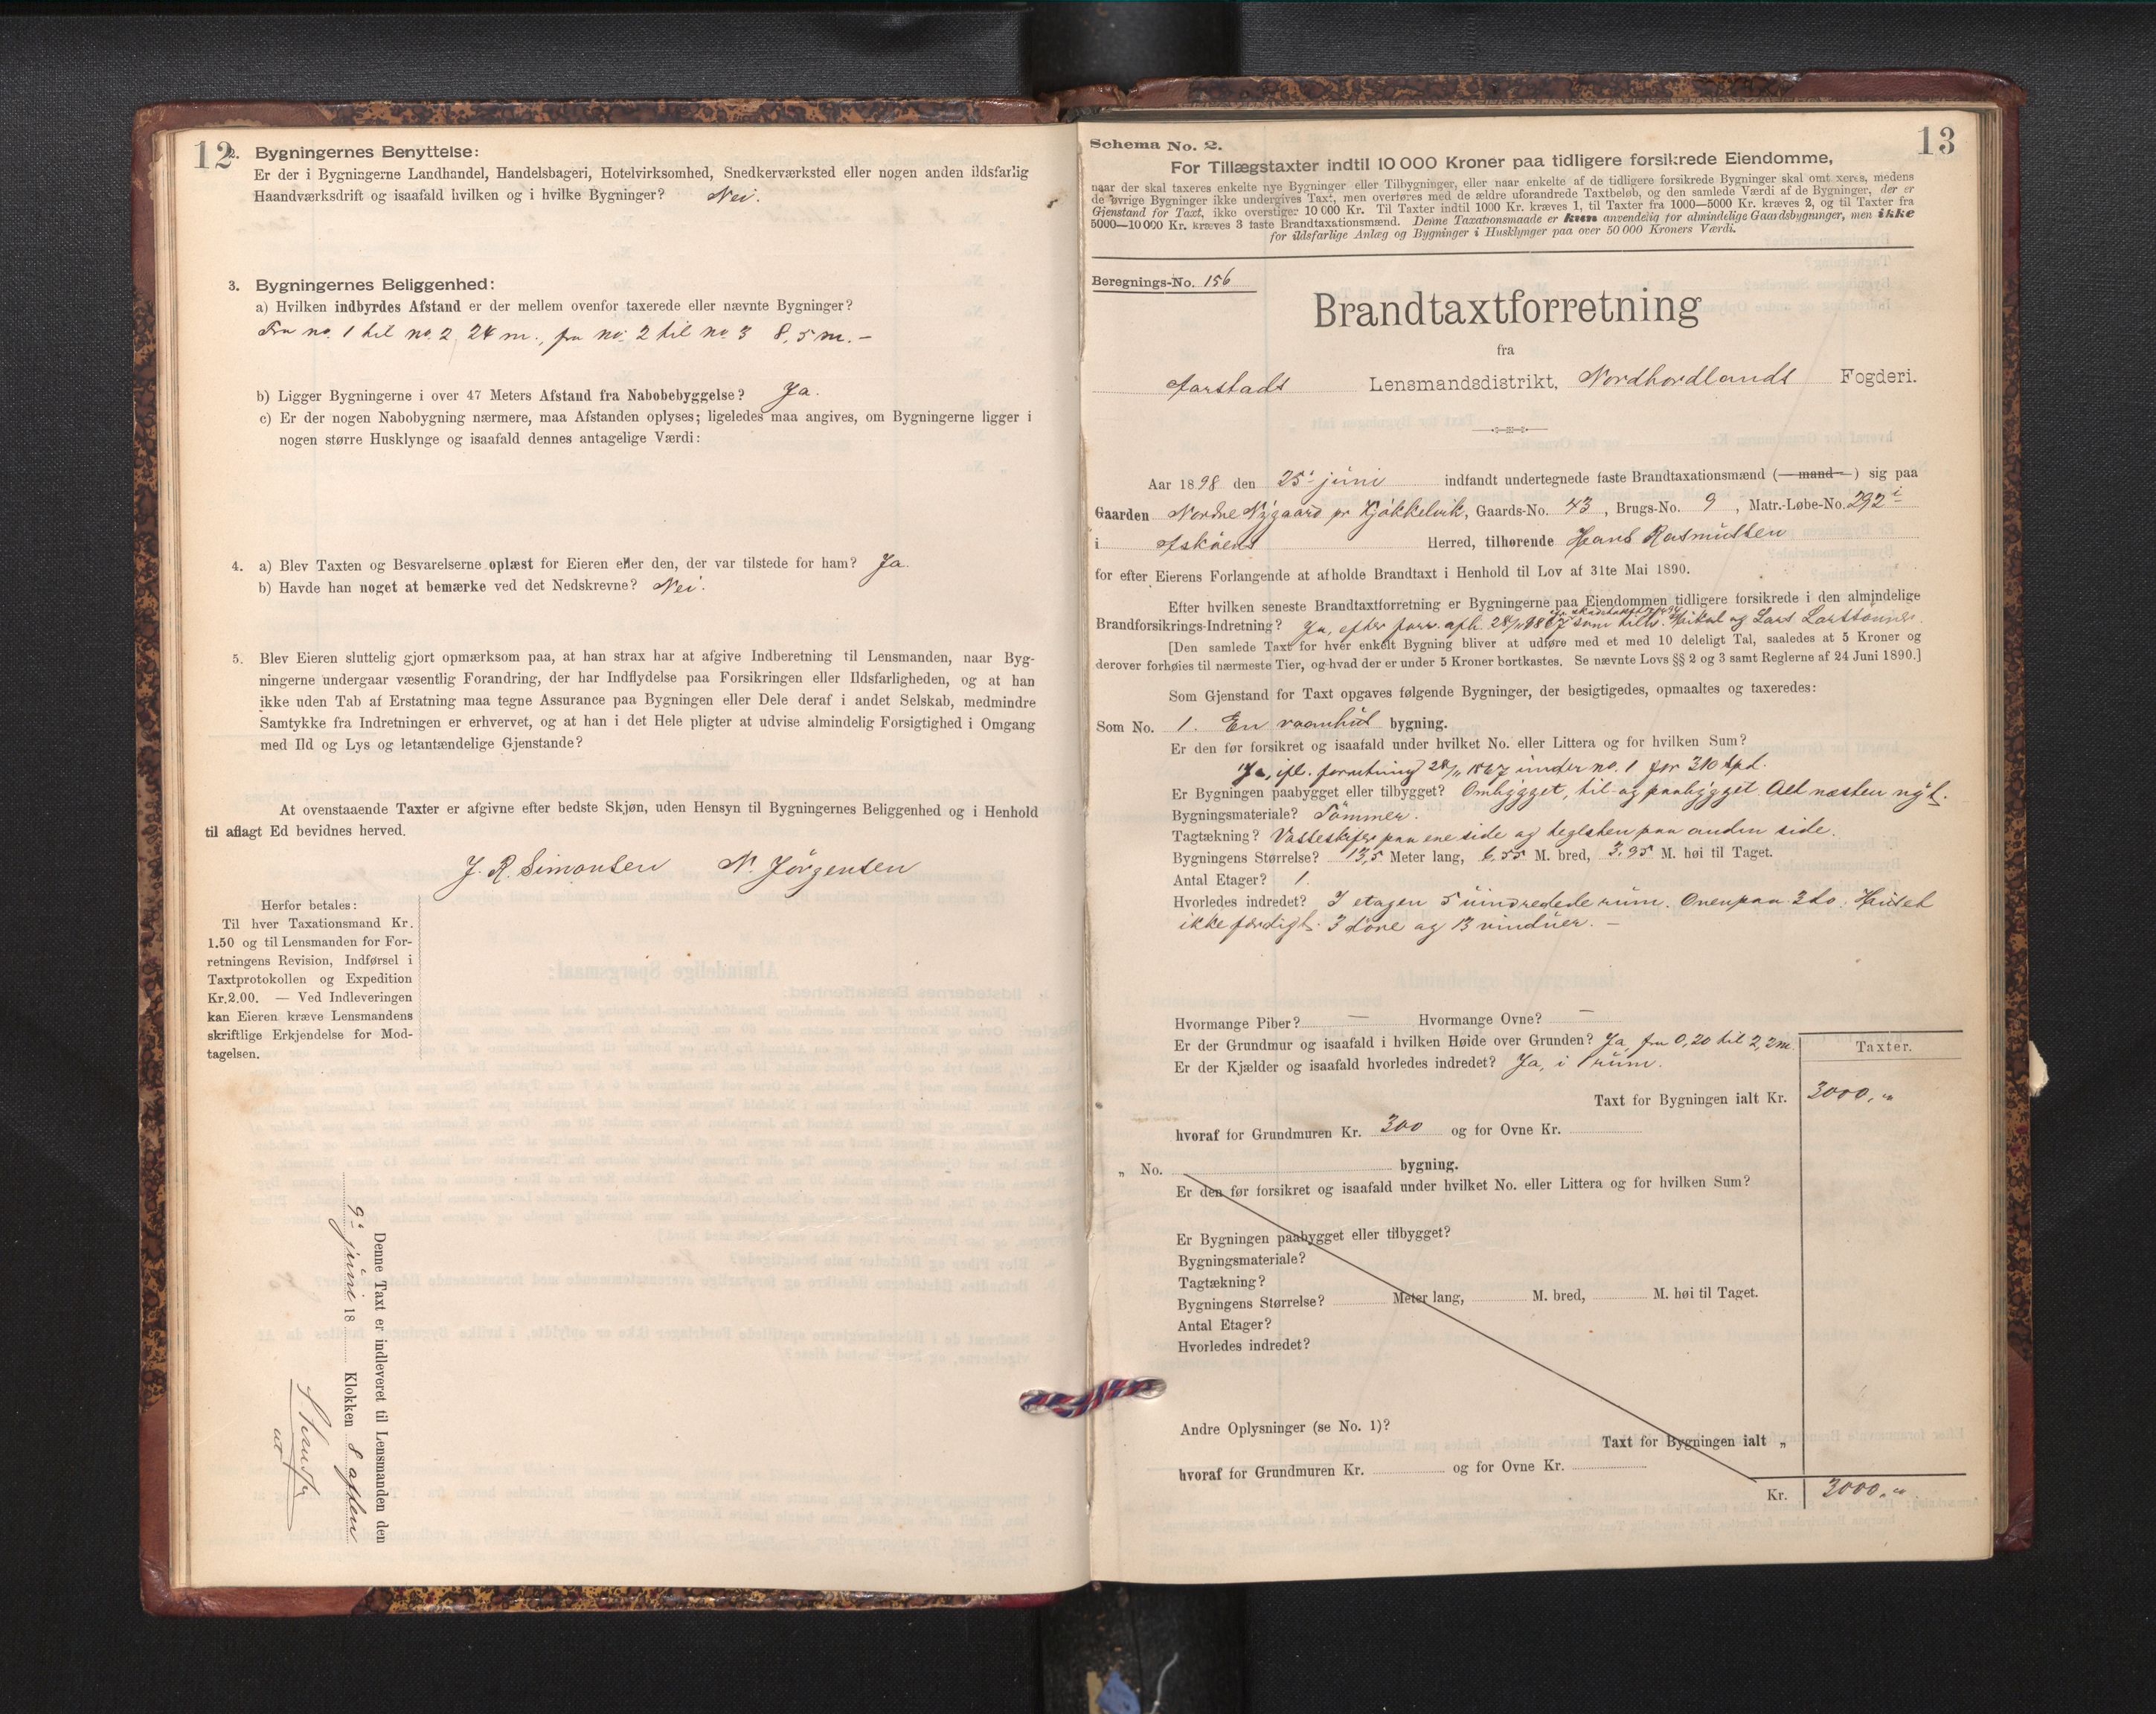 12
2. Bygningernes Benyttelse:
Er der i Bygningerne Landhandel, Handelsbageri, Hotelvirksomhed, Snedkerværksted eller nogen anden ildsfarlig
Haandværksdrift og isaafald hvilken og i hvilke Bygninger? Nei.
3. Bygningernes Beliggenhed:
a) Hvilken indbyrdes Afstand er der mellem ovenfor taxerede eller nævnte Bygninger?
Fra no. 1 til no. 2 24 m., fra no. 2 til no 3 8,5 m. –
b) Ligger Bygningerne i over 47 Meters Afstand fra Nabobebyggelse? Ja.
c) Er der nogen Nabobygning nærmere, maa Afstanden oplyses; ligeledes maa angives, om Bygningerne ligger i
nogen større Husklynge og isaafald dennes antagelige Værdi:
4. a) Blev Taxten og Besvarelserne oplæst for Eieren eller den, der var tilstede for ham? Ja.
b) Havde han noget at bemærke ved det Nedskrevne? Nei.
5. Blev Eieren sluttelig gjort opmærksom paa, at han strax har at afgive Indberetning til Lensmanden, naar Byg-
ningerne undergaar væsentlig Forandring, der har Indflydelse paa Forsikringen eller Ildsfarligheden, og at han
ikke uden Tab af Erstatning maa tegne Assurance paa Bygningen eller Dele deraf i andet Selskab, medmindre
Samtykke fra Indretningen er erhvervet, og at han i det Hele pligter at udvise almindelig Forsigtighed i Omgang
med Ild og Lys og letantændelige Gjenstande?
At ovenstaaende Taxter er afgivne efter bedste Skjøn, uden Hensyn til Bygningernes Beliggenhed og i Henhold
til aflagt Ed bevidnes herved.
J. R. Simonsen N. Jörgensen
Herfor betales:
Til hver Taxationsmand Kr.
1.50 og til Lensmanden for For-
retningens Revision, Indførsel i
Taxtprotokollen og Expedition
Kr. 2.00. — Ved Indleveringen
kan Eieren kræve Lensmandens
skriftlige Erkjendelse for Mod-
tagelsen.
Denne Taxt er indleveret til Lensmanden den
9' juni 18 Klokken 8 aften
13
Schema No. 2.
For Tillægstaxter indtil 10 000 Kroner paa tidligere forsikrede Eiendomme,
naar der skal taxeres enkelte nye Bygninger eller Tilbygninger, eller naar enkelte af de tidligere forsikrede Bygninger skal omtaxeres, medens
de øvrige Bygninger ikke undergives Taxt, men overføres med de ældre uforandrede Taxtbeløb, og den samlede Værdi af de Bygninger, der er
Gjenstand for Taxt, ikke overstiger 10 000 Kr. Til Taxter indtil 1000 Kr. kræves 1, til Taxter fra 1000—5000 Kr. kræves 2, og til Taxter fra
5000—10 000 Kr. kræves 3 faste Brandtaxationsmænd. Denne Taxationsmaade er kun anvendelig for almindelige Gaardsbygninger, men ikke
for ildsfarlige Anlæg og Bygninger i Husklynger paa over 50 000 Kroners Værdi.
Beregnings-No. 156
Brandtaxtforretning
fra
Aarstads Lensmandsdistrikt, Nordhordlands Fogderi.
Aar 1898 den 25' juni indfandt undertegnede faste Brandtaxationsmænd (—mand—) sig paa
Gaarden Nordre Nygaard pr Kjökkelvik, Gaards-No. 43, Brugs-No. 9, Matr.-Løbe-No. 292 i
i Asköens Herred, tilhørende Hans Rasmussen
for efter Eierens Forlangende at afholde Brandtaxt i Henhold til Lov af 31te Mai 1890.
Efter hvilken seneste Brandtaxtforretning er Bygningerne paa Eiendommen tidligere forsikrede i den almindelige
Brandforsikrings-Indretning? Ja, efter forr. afh. 28/11 1867 som tilh. Mikal og Lars Larssönner.
[Den samlede Taxt for hver enkelt Bygning bliver at udføre med et med 10 deleligt Tal, saaledes at 5 Kroner og
derover forhøies til nærmeste Tier, og hvad der er under 5 Kroner bortkastes. Se nævnte Lovs §§ 2 og 3 samt Reglerne af 24 Juni 1890.]
Som Gjenstand for Taxt opgaves følgende Bygninger, der besigtigedes, opmaaltes og taxeredes:
Som No. 1. En vaanhus bygning.
Er den før forsikret og isaafald under hvilket No. eller Littera og for hvilken Sum?
Ja, ifl. forretning 28/11 1867 under no. 1 for 310 spd.
Er Bygningen paabygget eller tilbygget? Ombygget, til og paabygget. Alt næsten nyt.
Bygningsmateriale? Tömmer.
Tagtækning? Vosseskifer paa ene side og teglsten paa anden side.
Bygningens Størrelse? 13,5 Meter lang, 6,55 M. bred, 3,95 M. høi til Taget.
Antal Etager? 1.
Hvorledes indredet? I etagen 5 uindredede rum. Ovenpaa 3 do. Huset
ikke færdigt. 3 döre og 13 vinduer. –
Hvormange Piber? — Hvormange Ovne? —
Er der Grundmur og isaafald i hvilken Høide over Grunden? Ja, fra 0,20 til 2,2 m.
Er der Kjælder og isaafald hvorledes indredet? Ja, i 1 rum.
Taxter.
Taxt for Bygningen ialt Kr. 3000, "
hvoraf for Grundmuren Kr. 300 og for Ovne Kr.
„ No. bygning.
Er den før forsikret og isaafald under hvilket No. eller Littera og for hvilken Sum?
Er Bygningen paabygget eller tilbygget?
Bygningsmateriale?
Tagtækning?
Bygningens Størrelse? Meter lang, M. bred, M. høi til Taget.
Antal Etager?
Hvorledes indredet?
Andre Oplysninger (se No. 1)?
Taxt for Bygningen ialt „
hvoraf for Grundmuren Kr. og for Ovne Kr.
Kr. 3000, "